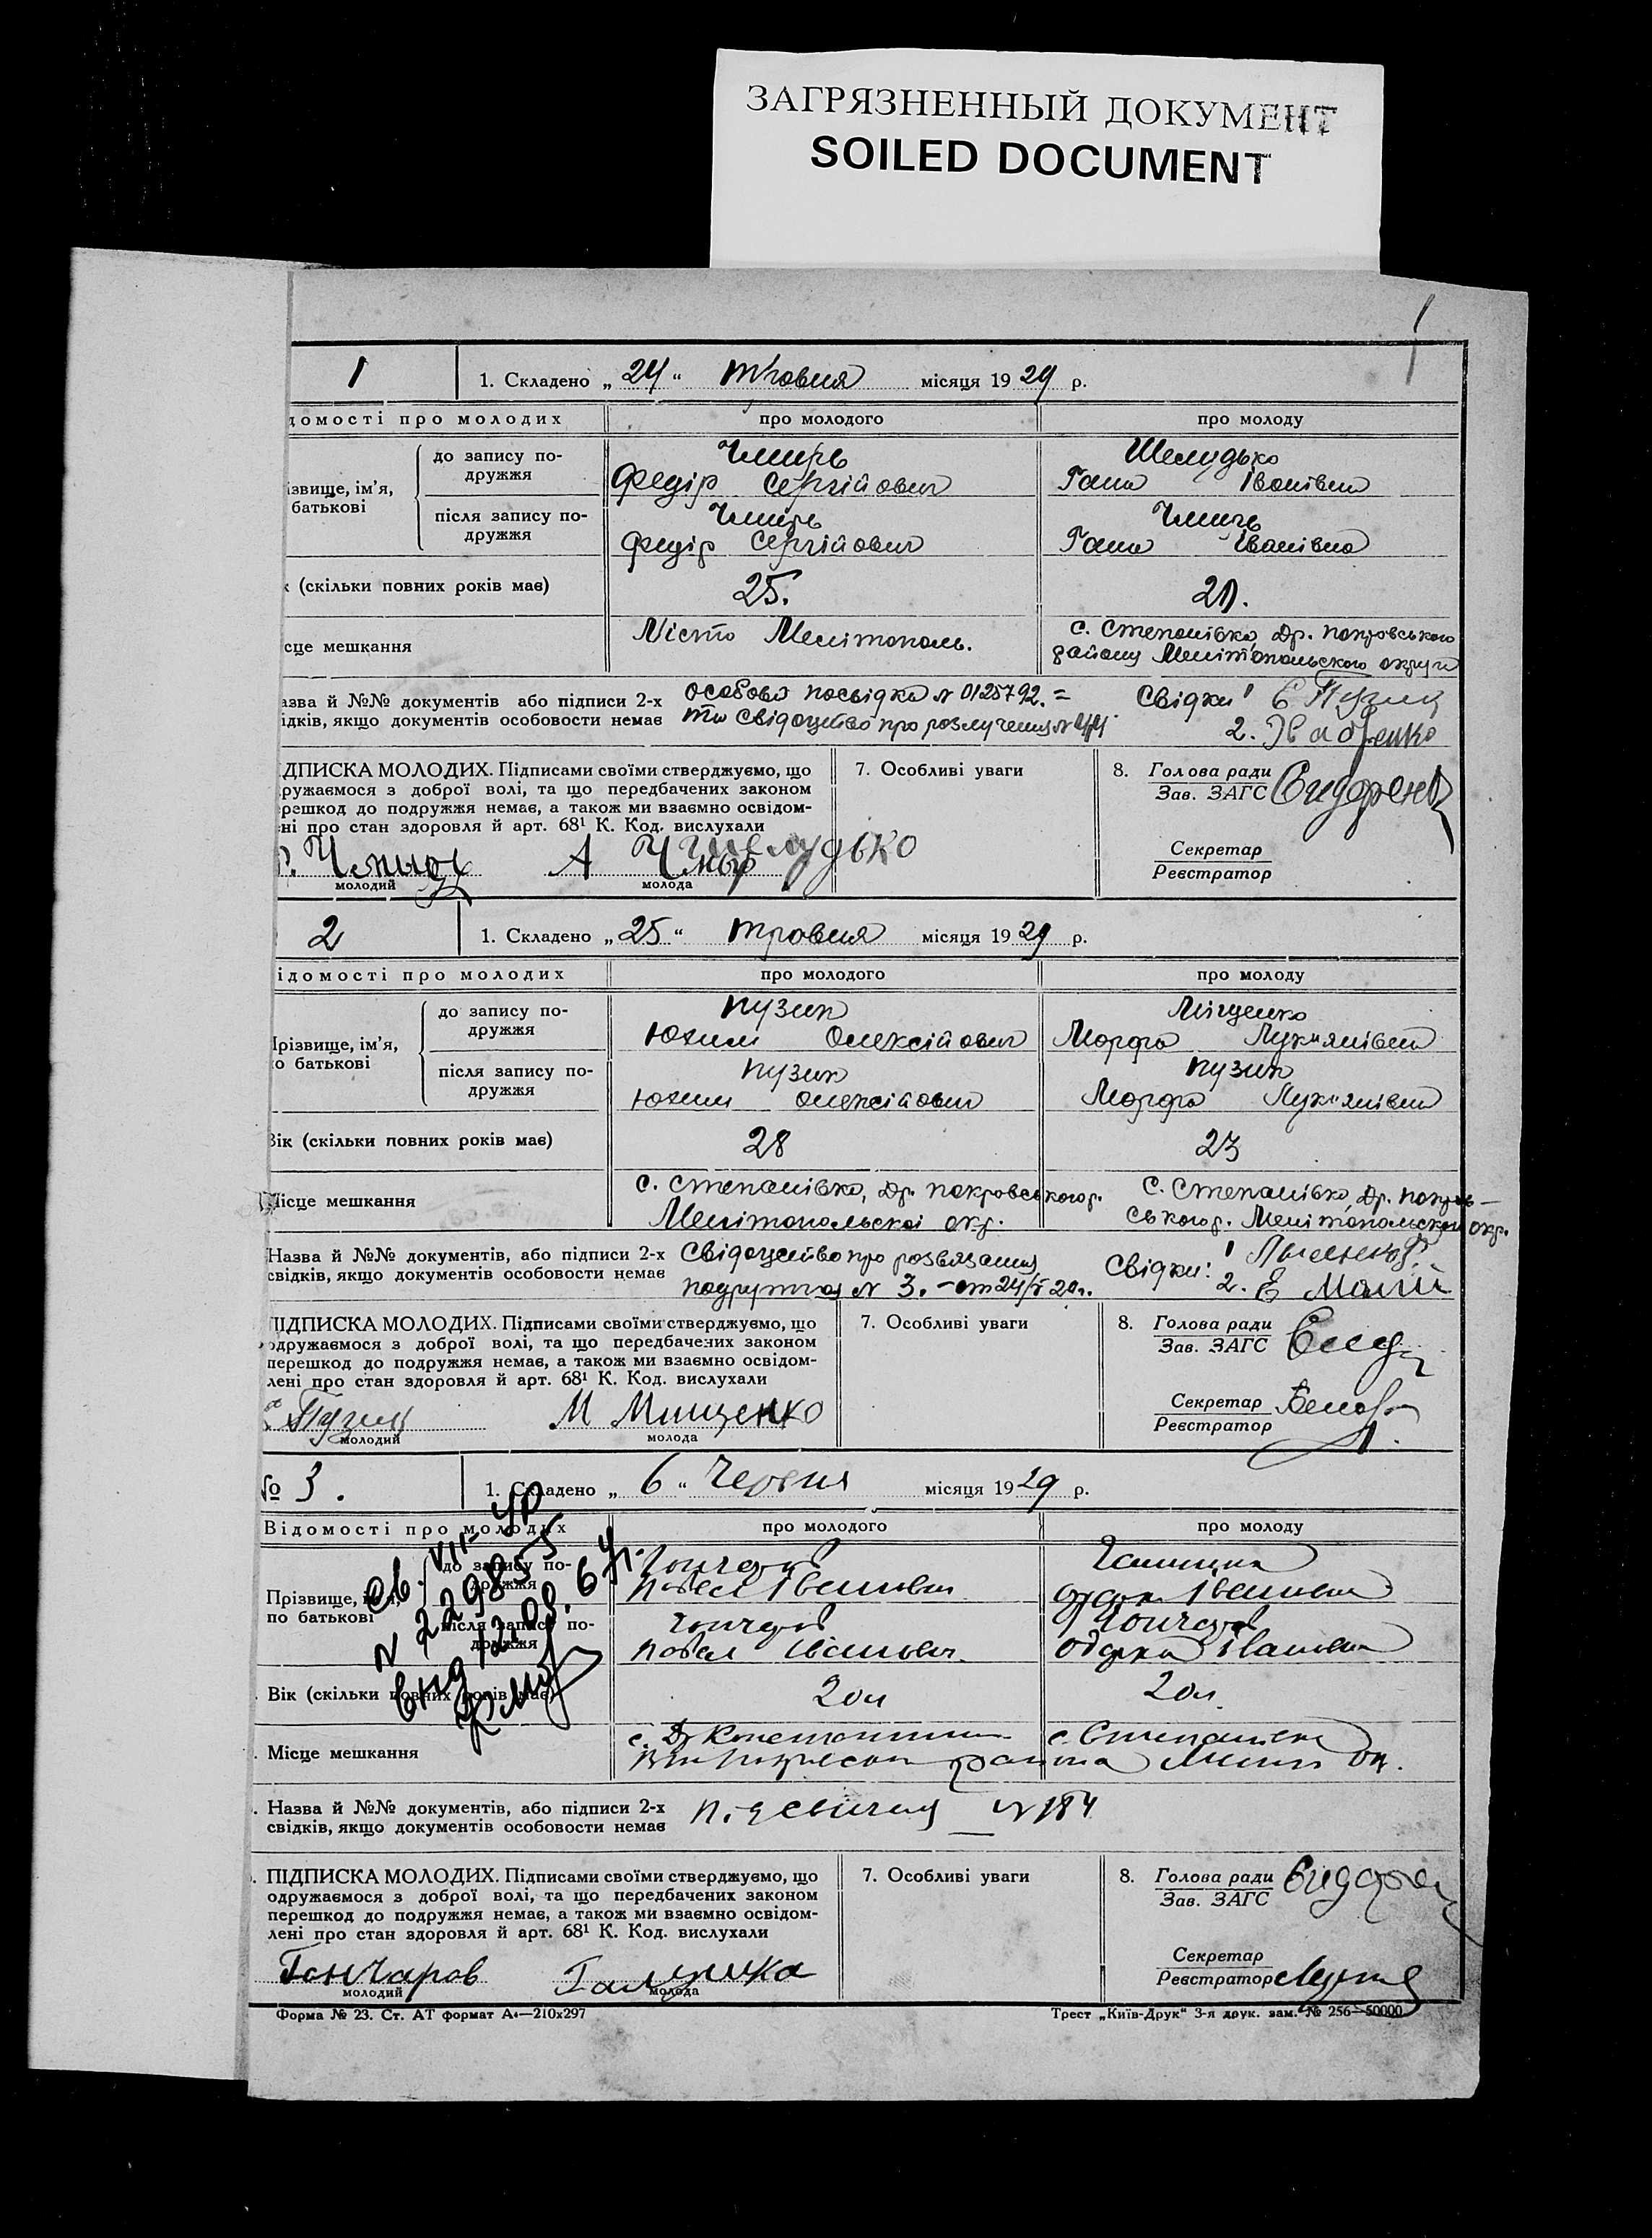 ЗАГРЯЗНЕННЫЙ ДОКУМЕНТ
SOILED DOCUMENT
1
1. Складено „ 24 “ травня місяця 1929 р.
домості про молодих
про молодого
про молоду
ізвище, ім’я,
батькові
до запису по-
дружжя
Чмирь
Федір Сергійович
Шелудько
Ганна Іванівна
після запису по-
дружжя
Чмирь
Федір Сергійович
Чмирь
Ганна Іванівна
к (скільки повних років має)
25.
21.
сце мешкання
Місто Мелітополь.
с. Степанівка, Др. Покровського
району Мелітопольского округи
азва й №№ документів або підписи 2-х
ідків, якщо документів особовости немає
особова посвідка № 0125792. =
та свідоцтво про розлучення №
Свідки 1 Є Пузик
2.
ДПИСКА МОЛОДИХ. Підписами своїми стверджуємо, що
ружаємося з доброї волі, та що передбачених законом
решкод до подружжя немає, а також ми взаємно освідом-
ні про стан здоровля й арт. 68¹ К. Код. вислухали
молодий
А Чмыр Шелудько
молода
7. Особливі уваги
8. Голова ради
Зав. ЗАГС
Секретар
Реєстратор
2
1. Складено „ 25 “ травня місяця 1929 р.
ідомості про молодих
про молодого
про молоду
Прізвище, ім’я,
о батькові
до запису по-
дружжя
Пузик
Юхим Олексійович
Міщенко
Марфа Лук"янівна
після запису по-
дружжя
Пузик
Юхим Олексійович
Пузик
Марфа Лук"янівна
Вік (скільки повних років має)
28
23
Місце мешкання
с. Степанівка, Др. Покровського р.
Мелітопольскоі окр.
с. Степанівка, Др. Покров-
ського р. Мелітопольскои окр.
Назва й №№ документів, або підписи 2-х
свідків, якщо документів особовости немає
Свідоцтво про розвязання
подружжя № 3. - от 24/V 29 р.
Свідки: 1
2. Е Малий
ПІДПИСКА МОЛОДИХ. Підписами своїми стверджуємо, що
одружаємося з доброї волі, та що передбачених законом
перешкод до подружжя немає, а також ми взаємно освідом-
лені про стан здоровля й арт. 68¹ К. Код. вислухали
Пузик
молодий
М Мищенко
молода
7. Особливі уваги
8. Голова ради
Зав. ЗАГС
Секретар
Реєстратор
№ 3.
1. Складено „ 6 “ Червня місяця 1929 р.
Відомості про молодих
про молодого
про молоду
Прізвище, ім’я,
по батькові
до запису по-
дружжя
Гончаров
Павел Іванович
Галушка
Одарка Івановна
після запису по-
дружжя
Гончаров
Павел Іванович
Гончарова
Одарка Івановна
Св. VII-УР
N 229855
выд 12.08.64 г.
Вік (скільки повних років має)
20 л
20 л
Місце мешкання
с. Степановка
Назва й №№ документів, або підписи 2-х
свідків, якщо документів особовости немає
№ 184
ПІДПИСКА МОЛОДИХ. Підписами своїми стверджуємо, що
одружаємося з доброї волі, та що передбачених законом
перешкод до подружжя немає, а також ми взаємно освідом-
лені про стан здоровля й арт. 68¹ К. Код. вислухали
Гончаров
молодий
Галушка
молода
7. Особливі уваги
8. Голова ради
Зав. ЗАГС
Секретар
Реєстратор
Форма № 23. Ст. АТ формат А₄—210х297
Трест „Київ-Друк“ 3-я друк. зам. № 256—50000